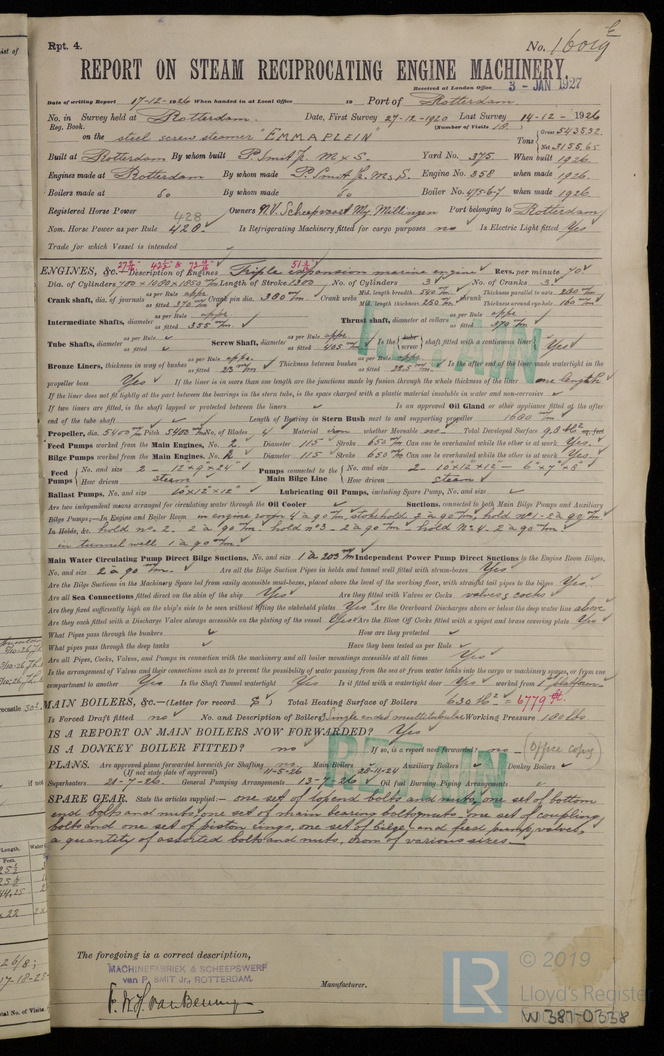 Rpt. 4.
No. 16019
REPORT ON STEAM RECIPROCATING ENGINE MACHINERY.
Received at London Office 3 - JAN 1927
Date of writing Report 17-12-1926 When handed in at Local Office 19 Port of Rotterdam
No. in Survey held at Rotterdam. Date, First Survey 27-12-1920 Last Survey 14-12-1926
Reg. Book. (Number of Visits 18)
on the steel screw steamer "EMMAPLEIN" Tons Gross 5435.32 Net 3155.65
Built at Rotterdam By whom built P. Smit Jr. M & S. Yard No. 375 When built 1926.
Engines made at Rotterdam By whom made P. Smit Jr. M & S. Engine No. 358 when made 1926.
Boilers made at do By whom made do Boiler No. 475-6-7 when made 1926.
Registered Horse Power Owners N.V. Scheepvaart My. Millingen Port belonging to Rotterdam
428
Nom. Horse Power as per Rule 420 Is Refrigerating Machinery fitted for cargo purposes no Is Electric Light fitted Yes
Trade for which Vessel is intended
ENGINES, &c.—Description of Engines Triple expansion marine engine Revs. per minute 70
Dia. of Cylinders 700 × 1080 × 1850 m/m Length of Stroke 1300 No. of Cylinders 3 No. of Cranks 3
Crank shaft, dia. of journals as per Rule appr as fitted 370 m/m Crank pin dia. 380 m/m Crank webs Mid. length breadth Thickness parallel to axis 230 m/m
Mid. length thickness 230 m/m shrunk Thickness around eye-hole 160 m/m
Intermediate Shafts, diameter as per Rule appr as fitted 355 m/m Thrust shaft, diameter at collars as per Rule appr as fitted 370 m/m
Tube Shafts, diameter as per Rule as fitted Screw Shaft, diameter as per Rule appr as fitted 405 m/m Is the tube screw shaft fitted with a continuous liner Yes
Bronze Liners, thickness in way of bushes as per Rule appr as fitted 23 m/m Thickness between bushes as per Rule appr as fitted 22.5 m/m Is the after end of the liner made watertight in the
propeller boss Yes If the liner is in more than one length are the junctions made by fusion through the whole thickness of the liner one length
If the liner does not fit tightly at the part between the bearings in the stern tube, is the space charged with a plastic material insoluble in water and non-corrosive
If two liners are fitted, is the shaft lapped or protected between the liners Is an approved Oil Gland or other appliance fitted at the after
end of the tube shaft Length of Bearing in Stern Bush next to and supporting propeller 1600 m/m
Propeller, dia. 5400 m/m Pitch 5400 m/m No. of Blades 4 Material iron whether Moveable no Total Developed Surface
Feed Pumps worked from the Main Engines, No. 2 Diameter 115 Stroke 650 m/m Can one be overhauled while the other is at work Yes
Bilge Pumps worked from the Main Engines, No. 2 Diameter 115 Stroke 650 m/m Can one be overhauled while the other is at work Yes
Feed Pumps No. and size 2 - 12" × 9" × 24" Pumps connected to the Main Bilge Line No. and size 2 - 10" × 12" × 12" - 6" × 7" × 8"
How driven steam How driven steam
Ballast Pumps, No. and size 10" × 12" × 12" Lubricating Oil Pumps, including Spare Pump, No. and size
Are two independent means arranged for circulating water through the Oil Cooler Suctions, connected to both Main Bilge Pumps and Auxiliary
Bilge Pumps;—In Engine and Boiler Room in engine room 4 à 90 m/m, stokehold 2 à 90 m/m, hold No 1 - 2 à 90 m/m
In Holds, &c. hold No 2 - 2 à 90 m/m - hold No 3 - 2 à 90 m/m - hold No 4 - 2 à 90 m/m
in tunnel well 1 à 90 m/m
Main Water Circulating Pump Direct Bilge Suctions, No. and size 1 à 203 m/m Independent Power Pump Direct Suctions to the Engine Room Bilges,
No. and size 2 à 90 m/m. Are all the Bilge Suction Pipes in holds and tunnel well fitted with strum-boxes Yes
Are the Bilge Suctions in the Machinery Space led from easily accessible mud-boxes, placed above the level of the working floor, with straight tail pipes to the bilges Yes
Are all Sea Connections fitted direct on the skin of the ship Yes Are they fitted with Valves or Cocks valves & cocks
Are they fixed sufficiently high on the ship's side to be seen without lifting the stokehold plates Yes Are the Overboard Discharges above or below the deep water line above
Are they each fitted with a Discharge Valve always accessible on the plating of the vessel Yes Are the Blow Off Cocks fitted with a spigot and brass covering plate Yes
What Pipes pass through the bunkers How are they protected
What pipes pass through the deep tanks Have they been tested as per Rule
Are all Pipes, Cocks, Valves, and Pumps in connection with the machinery and all boiler mountings accessible at all times Yes
Is the arrangement of Valves and their connections such as to prevent the possibility of water passing from the sea or from water tanks into the cargo or machinery spaces, or from one
compartment to another Yes Is the Shaft Tunnel watertight Yes Is it fitted with a watertight door Yes worked from platform
MAIN BOILERS, &c.—(Letter for record S) Total Heating Surface of Boilers 630 M² = 6779
Is Forced Draft fitted no No. and Description of Boilers 3 Single ended multitubular Working Pressure 180 lbs
IS A REPORT ON MAIN BOILERS NOW FORWARDED? Yes
IS A DONKEY BOILER FITTED? no If so, is a report now forwarded? no (Office copy)
PLANS. Are approved plans forwarded herewith for Shafting no 11-5-26 Main Boilers 28-11-24 Auxiliary Boilers Donkey Boilers
(If not state date of approval)
Superheaters 21-7-26. General Pumping Arrangements 13-7-26 Oil fuel Burning Piping Arrangements
SPARE GEAR. State the articles supplied:— one set of top end bolts and nuts, one set of bottom
end bolts and nuts, one set of main bearing bolts & nuts, one set of coupling
bolts and one set of piston rings, one set of bilge and feed pump valves,
a quantity of assorted bolts and nuts, iron of various sizes.
RETAIN
RETAIN
The foregoing is a correct description,
MACHINEFABRIEK & SCHEEPSWERF
van P. SMIT Jr., ROTTERDAM.
Manufacturer.
© 2019
LR
Lloyd's Register
W 387-0338